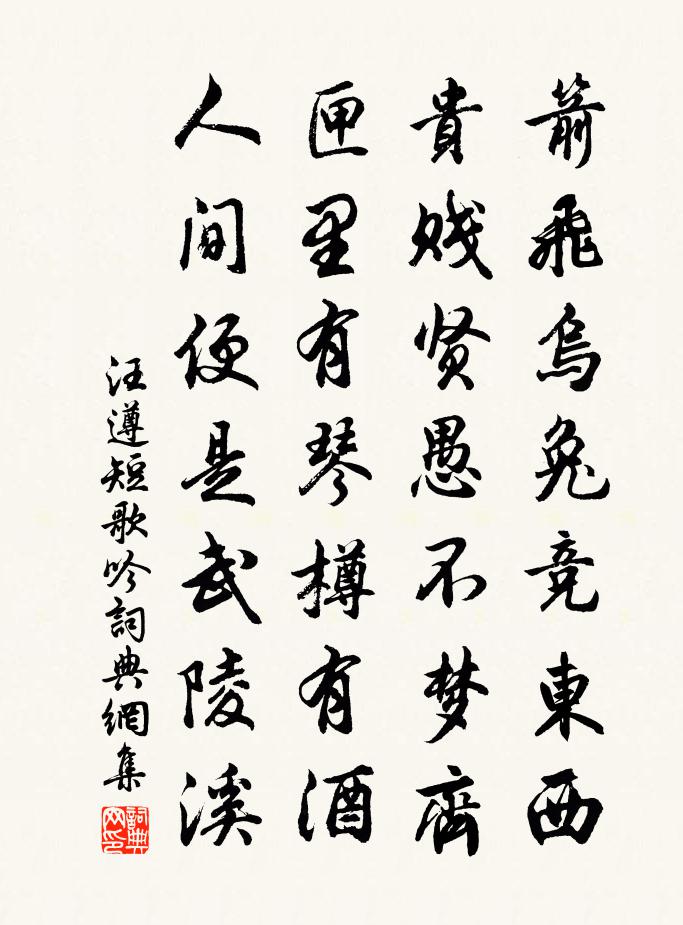 箭飛烏兔竞東西
貴贱贤愚不梦齊
匣里有琴樽有酒
人间便是武陵溪
汪遵短歌吟詞典網集
詞典网